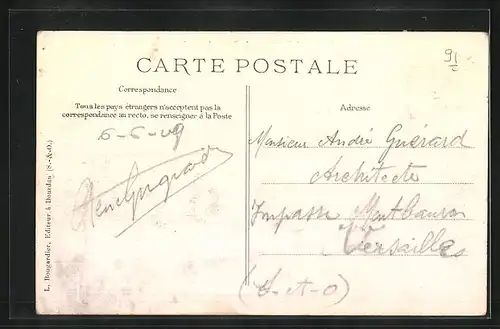 91
CARTE POSTALE
Correspondance
Tous les pays étrangers n'acceptent pas la
correspondance au recto, se renseigner à la Poste
6-6-09
Adresse
Monsieur André Guérard
Architecte
Impasse Montbauron
Versailles
(S-et-O)
L. Bougardier, Editeur à Dourdan (S.-&-O.)